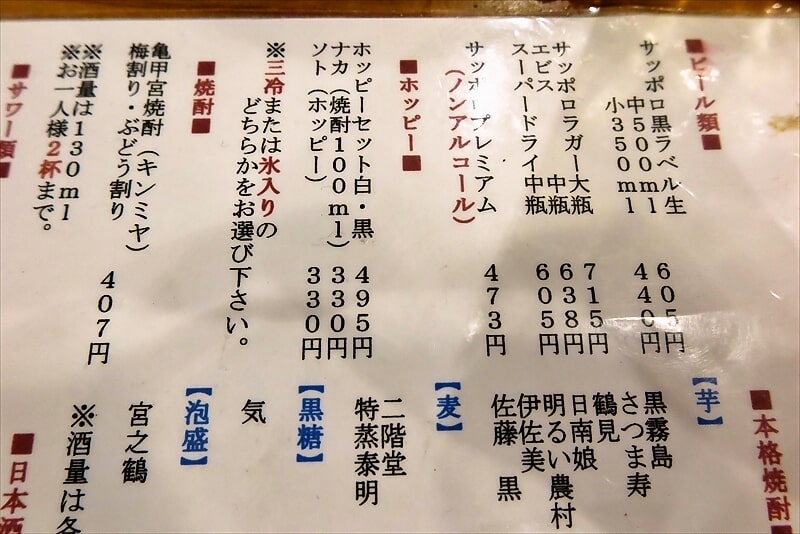 ■ビール類■
サッポロ黒ラベル生
中500ml 605円
小350ml 440円
サッポロラガー大瓶 715円
エビス 中瓶 638円
スーパードライ中瓶 605円
サッポロプレミアム
(ノンアルコール) 473円
■ホッピー■
ホッピーセット白・黒 495円
ナカ(焼酎100ml) 330円
ソト(ホッピー) 330円
※三冷または氷入りの
どちらかをお選び下さい。
■焼酎■
亀甲宮焼酎(キンミヤ)
梅割り・ぶどう割り 407円
※酒量は130ml
※お一人様2杯まで。
■サワー類■
■本格焼酎■
【芋】
黒霧島
さつま寿
鶴見
日南娘
明るい農村
伊佐美
佐藤 黒
【麦】
二階堂
特蒸泰明
【黒糖】
気
【泡盛】
宮之鶴
※酒量は各
■日本酒